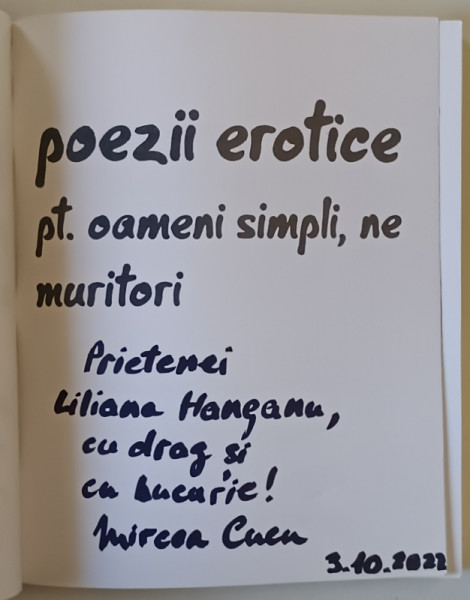 poezii erotice
pt. oameni simpli, ne
muritori
Prietenei
Liliana Hanganu,
cu drag si
cu bucurie!
Mircea Cucu
3.10.2022